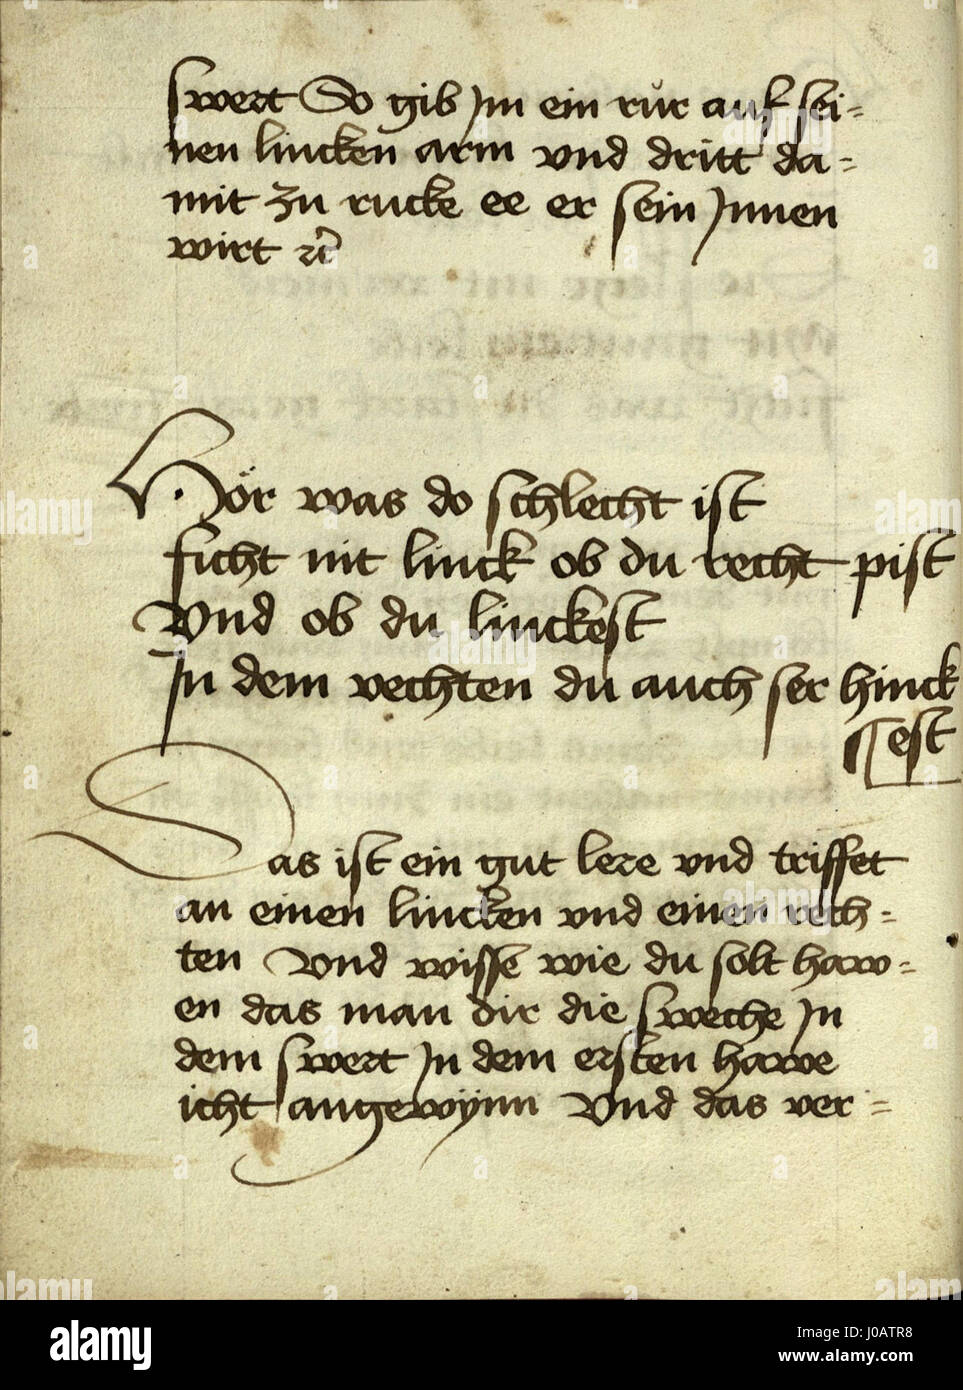 swert So gib Jm ein růr auf sei=
nen lincken arm vnd dritt da=
mit zu rucke ee er sein Jnnen
wirt ꝛc̄
Hör was do schlecht ist
ficht nit linck ob du recht pist
Vnd ob du linckest
Jn dem vechten du auch ser hinck
est
Das ist ein gut lere vnd triffet
an einen lincken vnd einen rech=
ten Vnd wissē wie du solt haw=
en das man dir die sweche Jn
dem swert Jn dem ersten hawe
icht angewÿnn Vnd das ver=
alamy
Image ID: J0ATR8
www.alamy.com